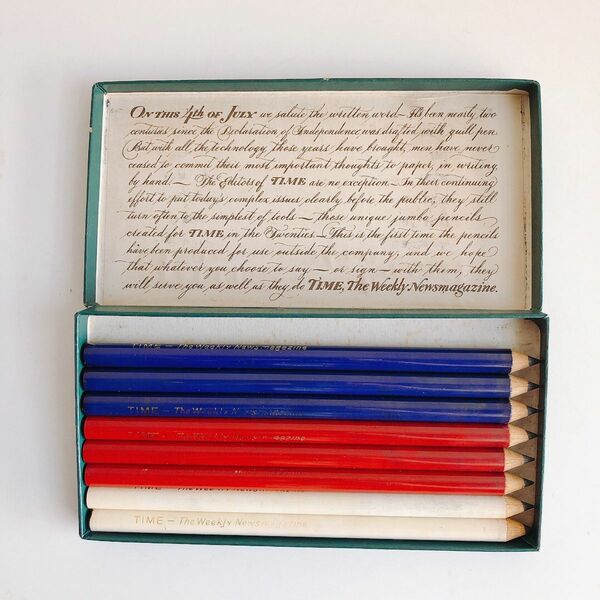 ON THIS 4th OF JULY we salute the written word — It's been nearly two
centuries since the Declaration of Independence was drafted with quill pen.
But with all the technology those years have brought, men have never
ceased to commit their most important thoughts to paper, in writing
by hand. — The Editors of TIME are no exception. — In their continuing
effort to put today's complex issues clearly before the public, they still
turn often to the simplest of tools — those unique jumbo pencils
created for TIME in the Twenties. — This is the first time the pencils
have been produced for use outside the company, and we hope
that whatever you choose to say — or sign — with them, they
will serve you as well as they do TIME, The Weekly Newsmagazine.
TIME — The Weekly Newsmagazine
TIME — The Weekly Newsmagazine
TIME — The Weekly Newsmagazine
TIME — The Weekly Newsmagazine
TIME — The Weekly Newsmagazine